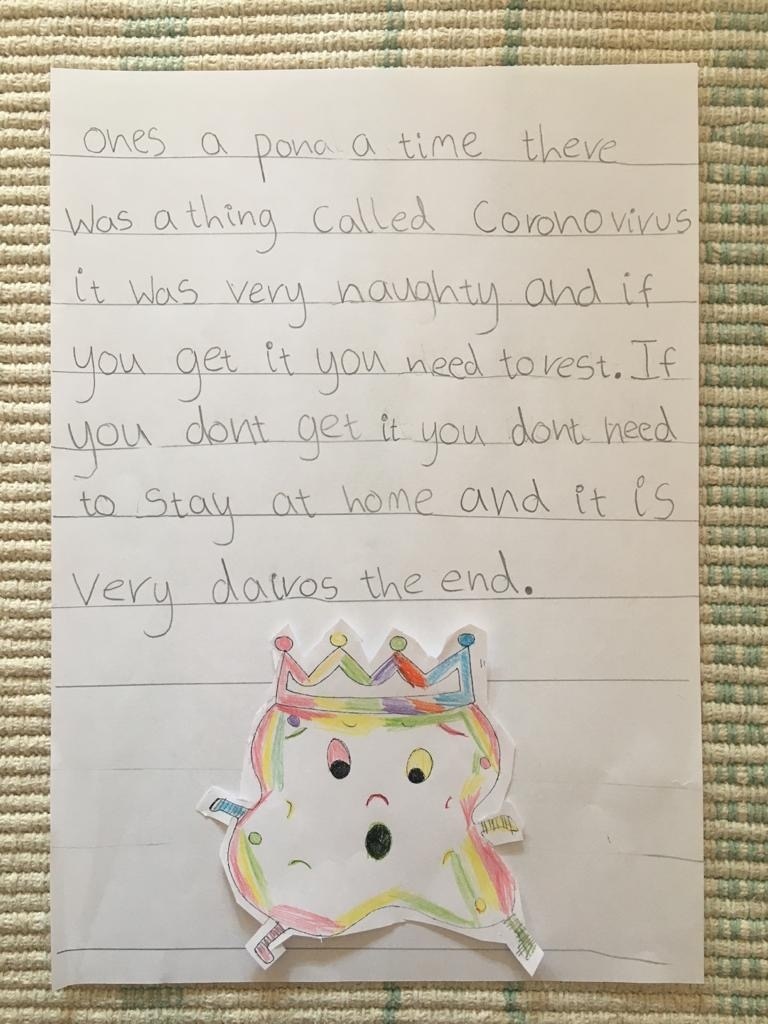 ones a pona a time there
was a thing called Coronovirus
it was very naughty and if
you get it you need to rest. If
you dont get it you dont need
to stay at home and it is
very dawros the end.